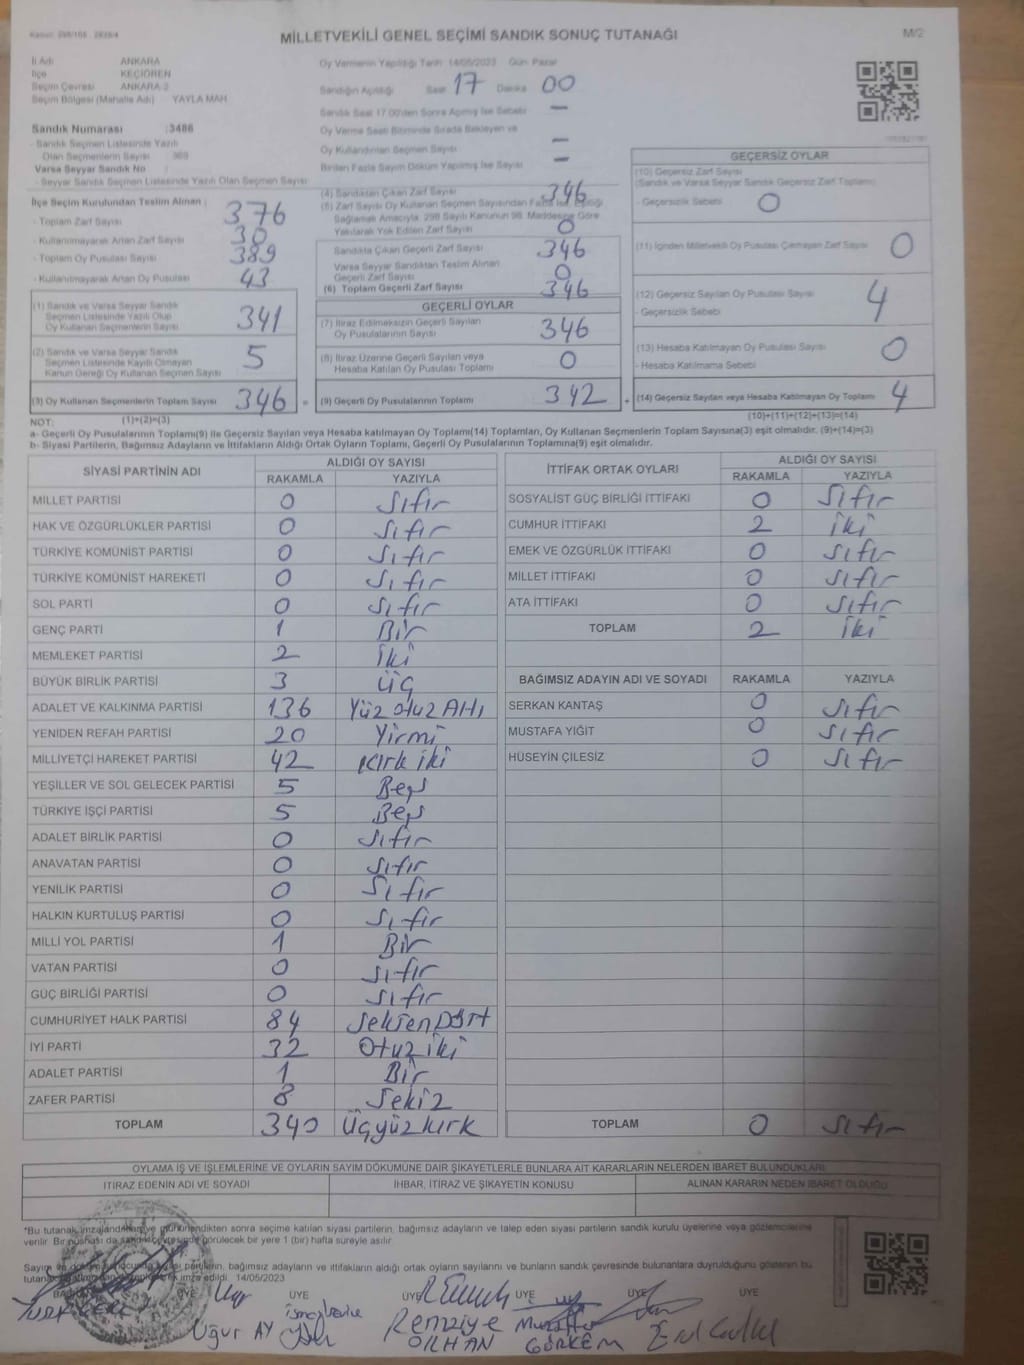 MİLLETVEKİLİ GENEL SEÇİMİ SANDIK SONUÇ TUTANAĞI
M/2
İl Adı ANKARA
İlçe KEÇİÖREN
Seçim Çevresi ANKARA 2
Seçim Bölgesi (Mahalle Adı) YAYLA MAH
Sandık Numarası :3486
- Sandık Seçmen Listesinde Yazılı
Olan Seçmenlerin Sayısı
Varsa Seyyar Sandık No
- Seyyar Sandık Seçmen Listesinde Yazılı Olan Seçmen Sayısı
Oy Vermenin Yapıldığı Tarih 14/05/2023 Gün Pazar
Sandığın Açıldığı Saat 17 Dakika 00
Sandık Saat 17.00'den Sonra Açılmış İse Sebebi —
Oy Verme Saati Bitiminde Sırada Bekleyen ve
Oy Kullandırılan Seçmen Sayısı —
Birden Fazla Sayım Döküm Yapılmış İse Sayısı —
İlçe Seçim Kurulundan Teslim Alınan
- Toplam Zarf Sayısı 376
- Kullanılmayarak Artan Zarf Sayısı 30
- Toplam Oy Pusulası Sayısı 389
- Kullanılmayarak Artan Oy Pusulası 43
(1) Sandık ve Varsa Seyyar Sandık
Seçmen Listesinde Yazılı Olup
Oy Kullanan Seçmenlerin Sayısı 341
(2) Sandık ve Varsa Seyyar Sandık
Seçmen Listesinde Kayıtlı Olmayan
Kanun Gereği Oy Kullanan Seçmen Sayısı 5
(3) Oy Kullanan Seçmenlerin Toplam Sayısı 346 =
(4) Sandıktan Çıkan Zarf Sayısı 346
(5) Zarf Sayısı Oy Kullanan Seçmen Sayısından Fazla İse, Eşitliği
Sağlamak Amacıyla, 298 Sayılı Kanunun 98. Maddesine Göre
Yakılarak Yok Edilen Zarf Sayısı 0
Sandıkta Çıkan Geçerli Zarf Sayısı 346
Varsa Seyyar Sandıktan Teslim Alınan
Geçerli Zarf Sayısı 0
(6) Toplam Geçerli Zarf Sayısı 346
GEÇERLİ OYLAR
(7) İtiraz Edilmeksizin Geçerli Sayılan
Oy Pusulalarının Sayısı 346
(8) İtiraz Üzerine Geçerli Sayılan veya
Hesaba Katılan Oy Pusulası Toplamı 0
(9) Geçerli Oy Pusulalarının Toplamı 342 +
GEÇERSİZ OYLAR
(10) Geçersiz Zarf Sayısı
(Sandık ve Varsa Seyyar Sandık Geçersiz Zarf Toplamı)
- Geçersizlik Sebebi 0
(11) İçinden Milletvekili Oy Pusulası Çıkmayan Zarf Sayısı 0
(12) Geçersiz Sayılan Oy Pusulası Sayısı 4
- Geçersizlik Sebebi
(13) Hesaba Katılmayan Oy Pusulası Sayısı 0
- Hesaba Katılmama Sebebi
(14) Geçersiz Sayılan veya Hesaba Katılmayan Oy Toplamı 4
NOT: (1)+(2)=(3) (10)+(11)+(12)+(13)=(14)
a- Geçerli Oy Pusulalarının Toplamı(9) ile Geçersiz Sayılan veya Hesaba katılmayan Oy Toplamı(14) Toplamları, Oy Kullanan Seçmenlerin Toplam Sayısına(3) eşit olmalıdır. (9)+(14)=(3)
b- Siyasi Partilerin, Bağımsız Adayların ve İttifakların Aldığı Ortak Oyların Toplamı, Geçerli Oy Pusulalarının Toplamına(9) eşit olmalıdır.
SİYASİ PARTİNİN ADI ALDIĞI OY SAYISI
RAKAMLA YAZIYLA
MİLLET PARTİSİ 0 Sıfır
HAK VE ÖZGÜRLÜKLER PARTİSİ 0 Sıfır
TÜRKİYE KOMÜNİST PARTİSİ 0 Sıfır
TÜRKİYE KOMÜNİST HAREKETİ 0 Sıfır
SOL PARTİ 0 Sıfır
GENÇ PARTİ 1 Bir
MEMLEKET PARTİSİ 2 İki
BÜYÜK BİRLİK PARTİSİ 3 Üç
ADALET VE KALKINMA PARTİSİ 136 Yüz otuz Altı
YENİDEN REFAH PARTİSİ 20 Yirmi
MİLLİYETÇİ HAREKET PARTİSİ 42 Kırk iki
YEŞİLLER VE SOL GELECEK PARTİSİ 5 Beş
TÜRKİYE İŞÇİ PARTİSİ 5 Beş
ADALET BİRLİK PARTİSİ 0 Sıfır
ANAVATAN PARTİSİ 0 Sıfır
YENİLİK PARTİSİ 0 Sıfır
HALKIN KURTULUŞ PARTİSİ 0 Sıfır
MİLLİ YOL PARTİSİ 1 Bir
VATAN PARTİSİ 0 Sıfır
GÜÇ BİRLİĞİ PARTİSİ 0 Sıfır
CUMHURİYET HALK PARTİSİ 84 Seksen Dört
İYİ PARTİ 32 Otuz iki
ADALET PARTİSİ 1 Bir
ZAFER PARTİSİ 8 Sekiz
TOPLAM 340 Üçyüz kırk
İTTİFAK ORTAK OYLARI ALDIĞI OY SAYISI
RAKAMLA YAZIYLA
SOSYALİST GÜÇ BİRLİĞİ İTTİFAKI 0 Sıfır
CUMHUR İTTİFAKI 2 İki
EMEK VE ÖZGÜRLÜK İTTİFAKI 0 Sıfır
MİLLET İTTİFAKI 0 Sıfır
ATA İTTİFAKI 0 Sıfır
TOPLAM 2 İki
BAĞIMSIZ ADAYIN ADI VE SOYADI RAKAMLA YAZIYLA
SERKAN KANTAŞ 0 Sıfır
MUSTAFA YİĞİT 0 Sıfır
HÜSEYİN ÇİLESİZ 0 Sıfır
TOPLAM 0 Sıfır
OYLAMA İŞ VE İŞLEMLERİNE VE OYLARIN SAYIM DÖKÜMÜNE DAİR ŞİKAYETLERLE BUNLARA AİT KARARLARIN NELERDEN İBARET BULUNDUKLARI
İTİRAZ EDENİN ADI VE SOYADI İHBAR, İTİRAZ VE ŞİKAYETİN KONUSU ALINAN KARARIN NEDEN İBARET OLDUĞU
*Bu tutanak imzalandıktan ve mühürlendikten sonra seçime katılan siyasi partilerin, bağımsız adayların ve talep eden siyasi partilerin sandık kurulu üyelerine veya gözlemcilerine
verilir. Bir nüshası da sandık çevresinde görülecek bir yere 1 (bir) hafta süreyle asılır.
Sayım ve döküm sonucunda siyasi partilerin, bağımsız adayların ve ittifakların aldığı ortak oyların sayılarını ve bunların sandık çevresinde bulunanlara duyrulduğunu gösteren bu
imza edildi. 14/05/2023
ÜYE ÜYE ÜYE ÜYE ÜYE ÜYE
Uğur AY
Remziye
ORHAN
GÖRKEM